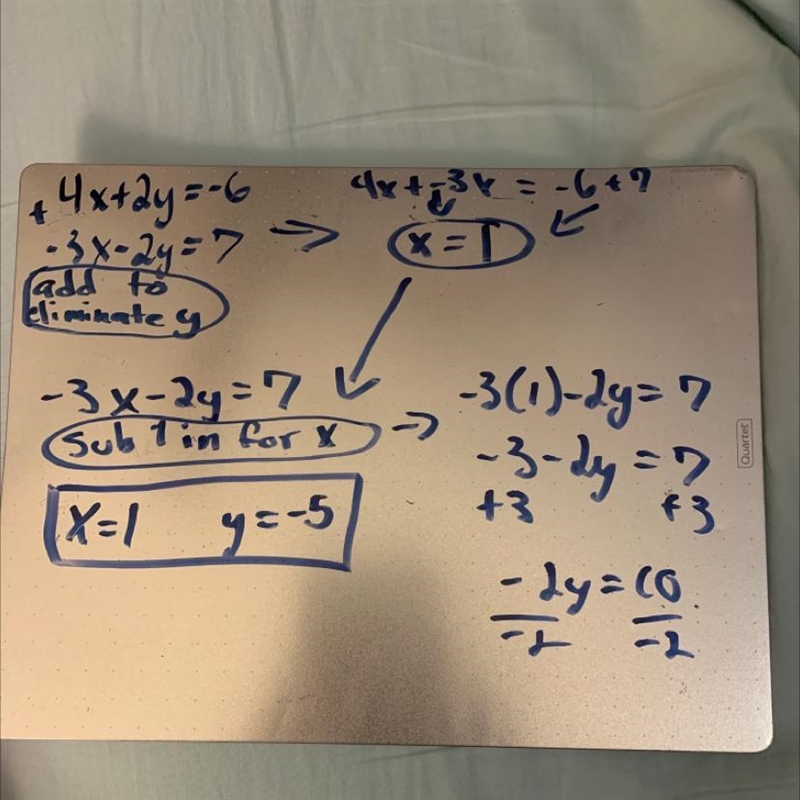 + 4x+2y=-6
-3x-2y=7
add to
eliminate y
4x+-3x = -6+7
x=1
-3x-2y=7
sub 1 in for x
-3(1)-2y=7
-3-2y=7
+3 +3
-2y=10
-2 -2
x=1 y=-5
Quartet